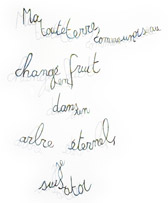 Ma
toute terre
comme un oiseau
change en fruit
dans un
arbre éternel
je
suis à toi